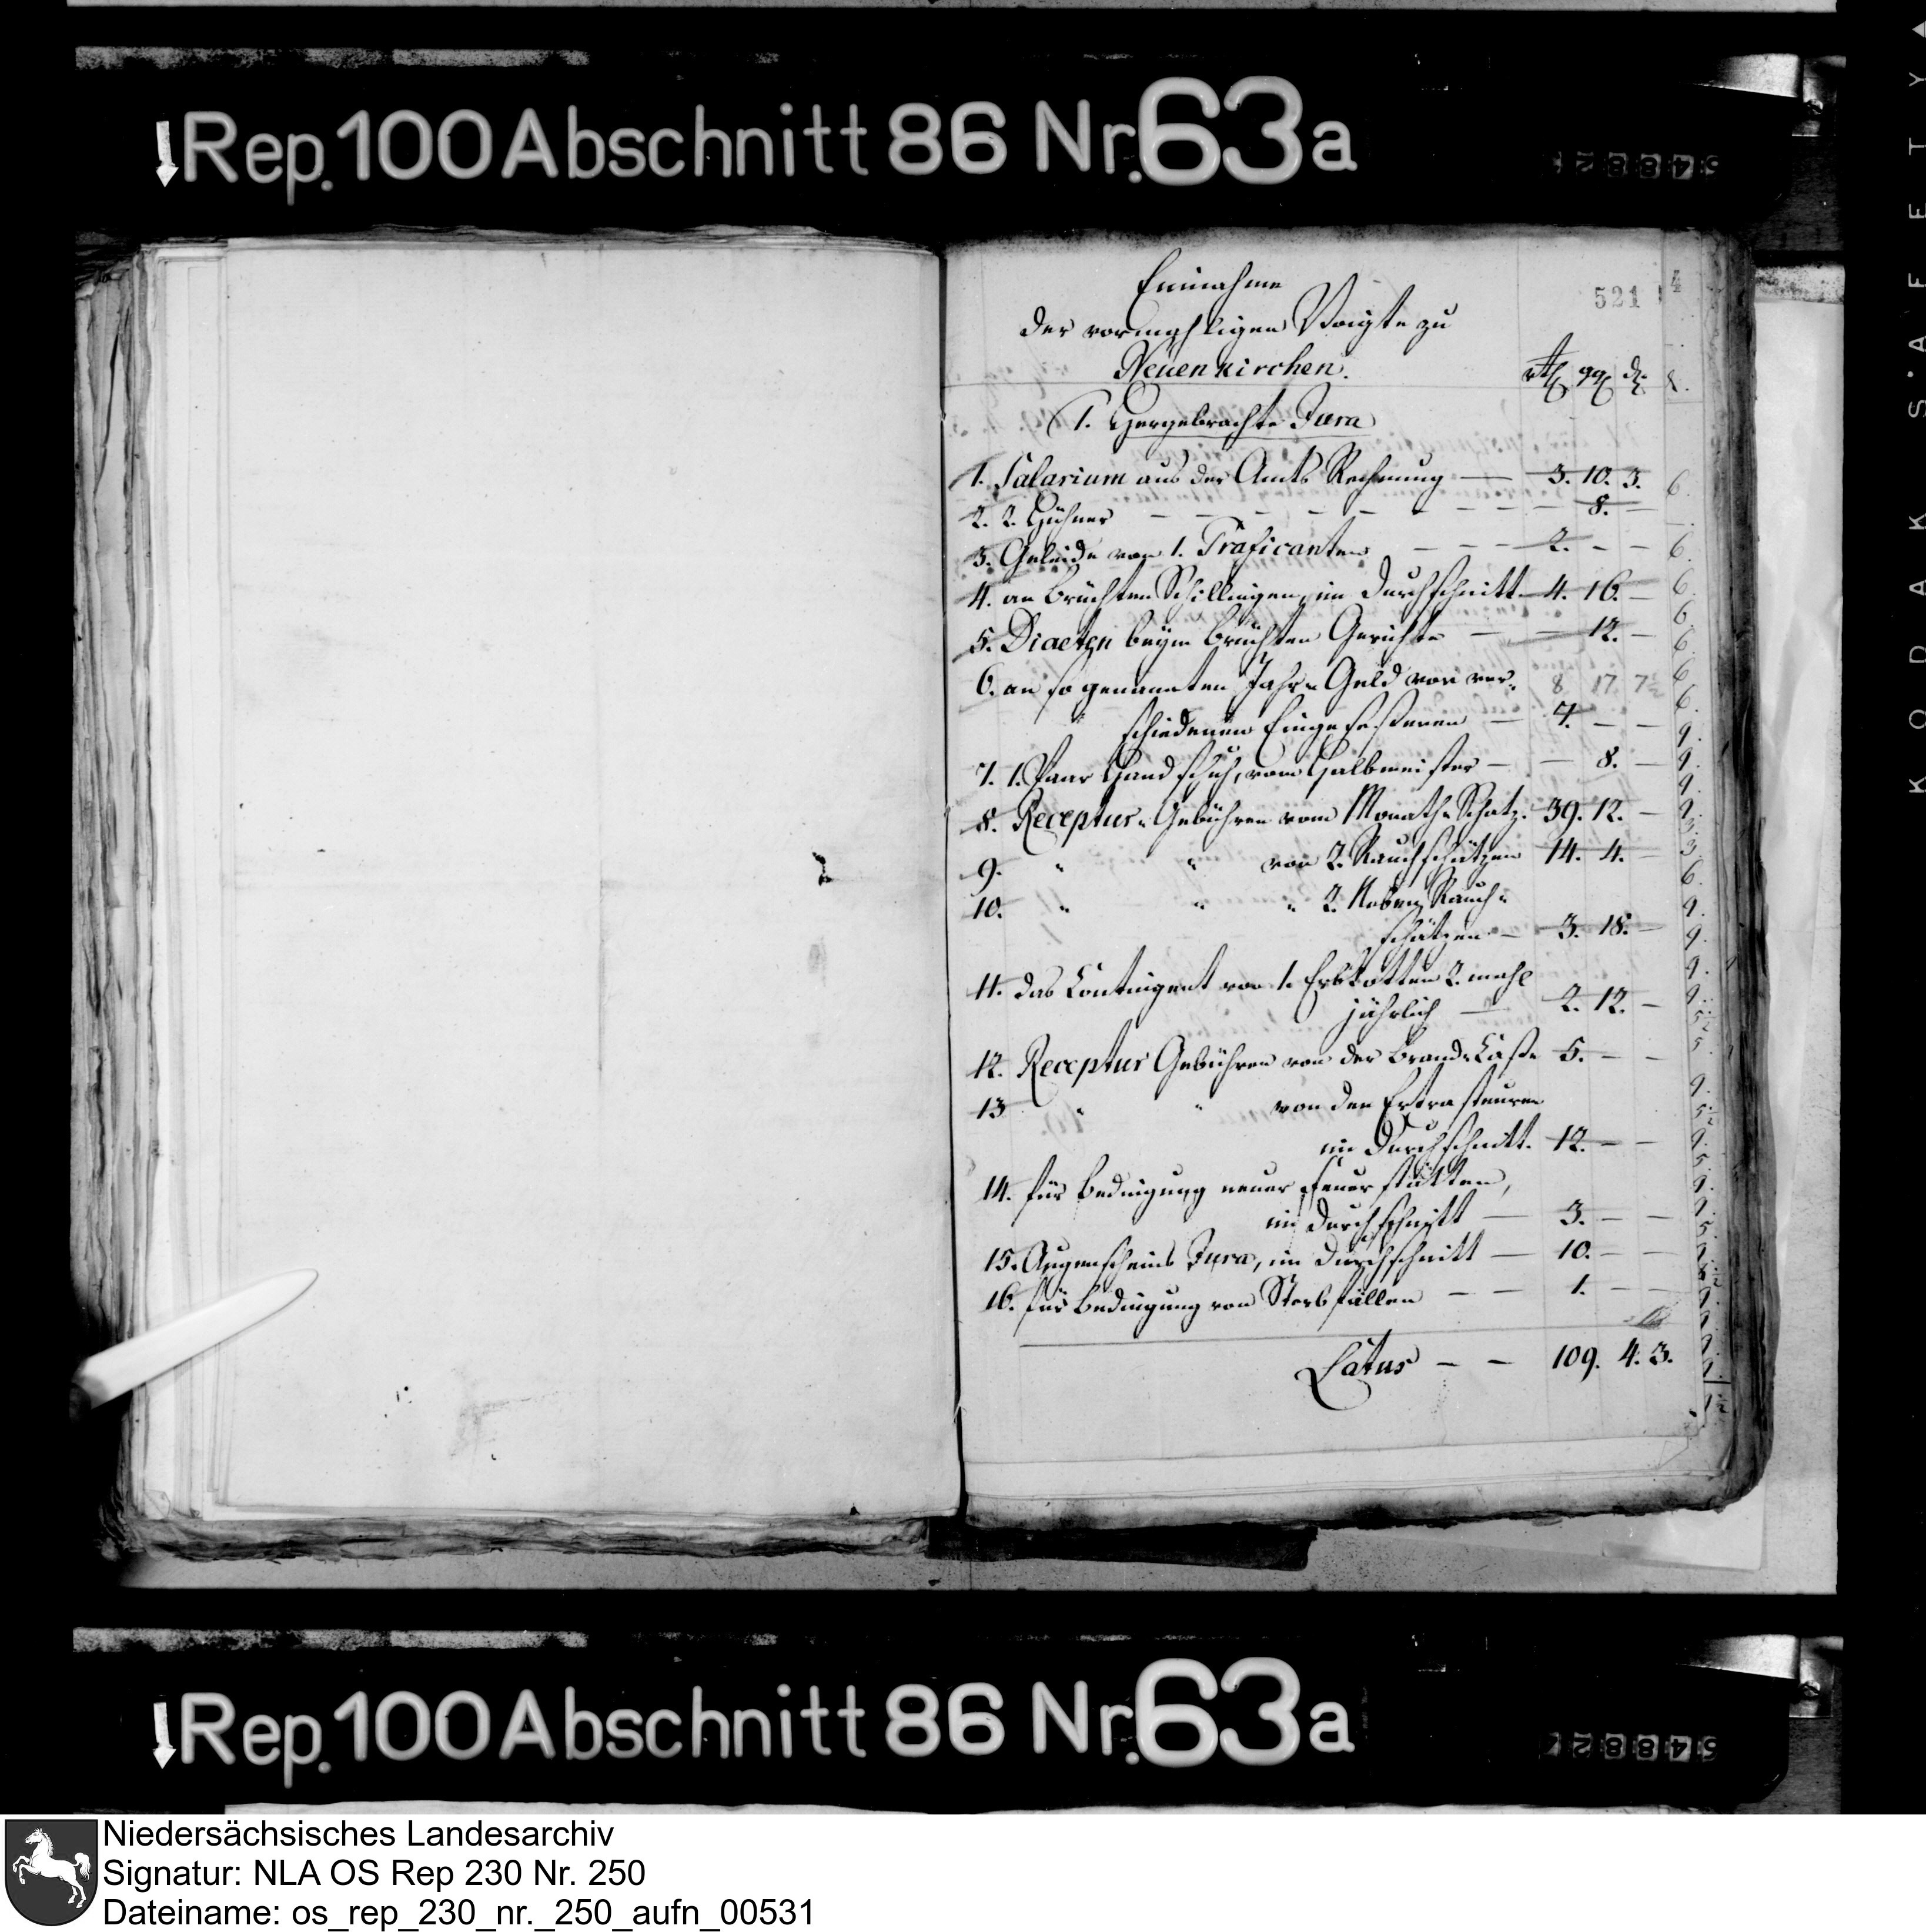 Rep. 100 Abschnitt 86 Nr. 63a
54882
521
Einnahme
der vormahligen Voigte zu
Neuenkirchen.
rtl ggl d
1. Hergebrachte Jura
1. Salarium aus der Amts Rechnung — 3. 10. 3.
2. 2. Hühner - - - - - - - - - 8. —
3. Geleide von 1. Traficanten - - - 2. - -
4. an Brüchten Schillingen, im Durchschnitt - 4. 16. —
5. Diaeten beym Brüchten Gerichte — — 12. —
6. an so genannten Jahr- Geld von ver- 8 17 7½
schiedenen Eingeseßenen — 7. — —
7. 1. Paar Handschuh, vom Halbmeister — — 8. —
8. Receptur- Gebühren vom Monath- Schatz. 39. 12. —
9. " " von 2. Rauchschätzen 14. 4. —
10. " " " 2. Neben Rauch-
schätzen — 3. 18. —
11. das Contingent von 1. Erbkotten 2. mahl
jährlich — 2. 12. —
12. Receptur Gebühren von der Brand- Casse 5. — —
13 " " von den Extrasteuren
im Durchschnitt. 12. — —
14. für Bedingung neuer Feuerstätten,
im Durchschnitt — 3. — —
15. Augenscheins Jura, im Durchschnitt — 10. — —
16. für Bedingung von Sterbfällen — — 1. — —
Latus — — 109. 4. 3.
KODAK SAFETY
Rep. 100 Abschnitt 86 Nr. 63a
54882
Niedersächsisches Landesarchiv
Signatur: NLA OS Rep 230 Nr. 250
Dateiname: os_rep_230_nr._250_aufn_00531